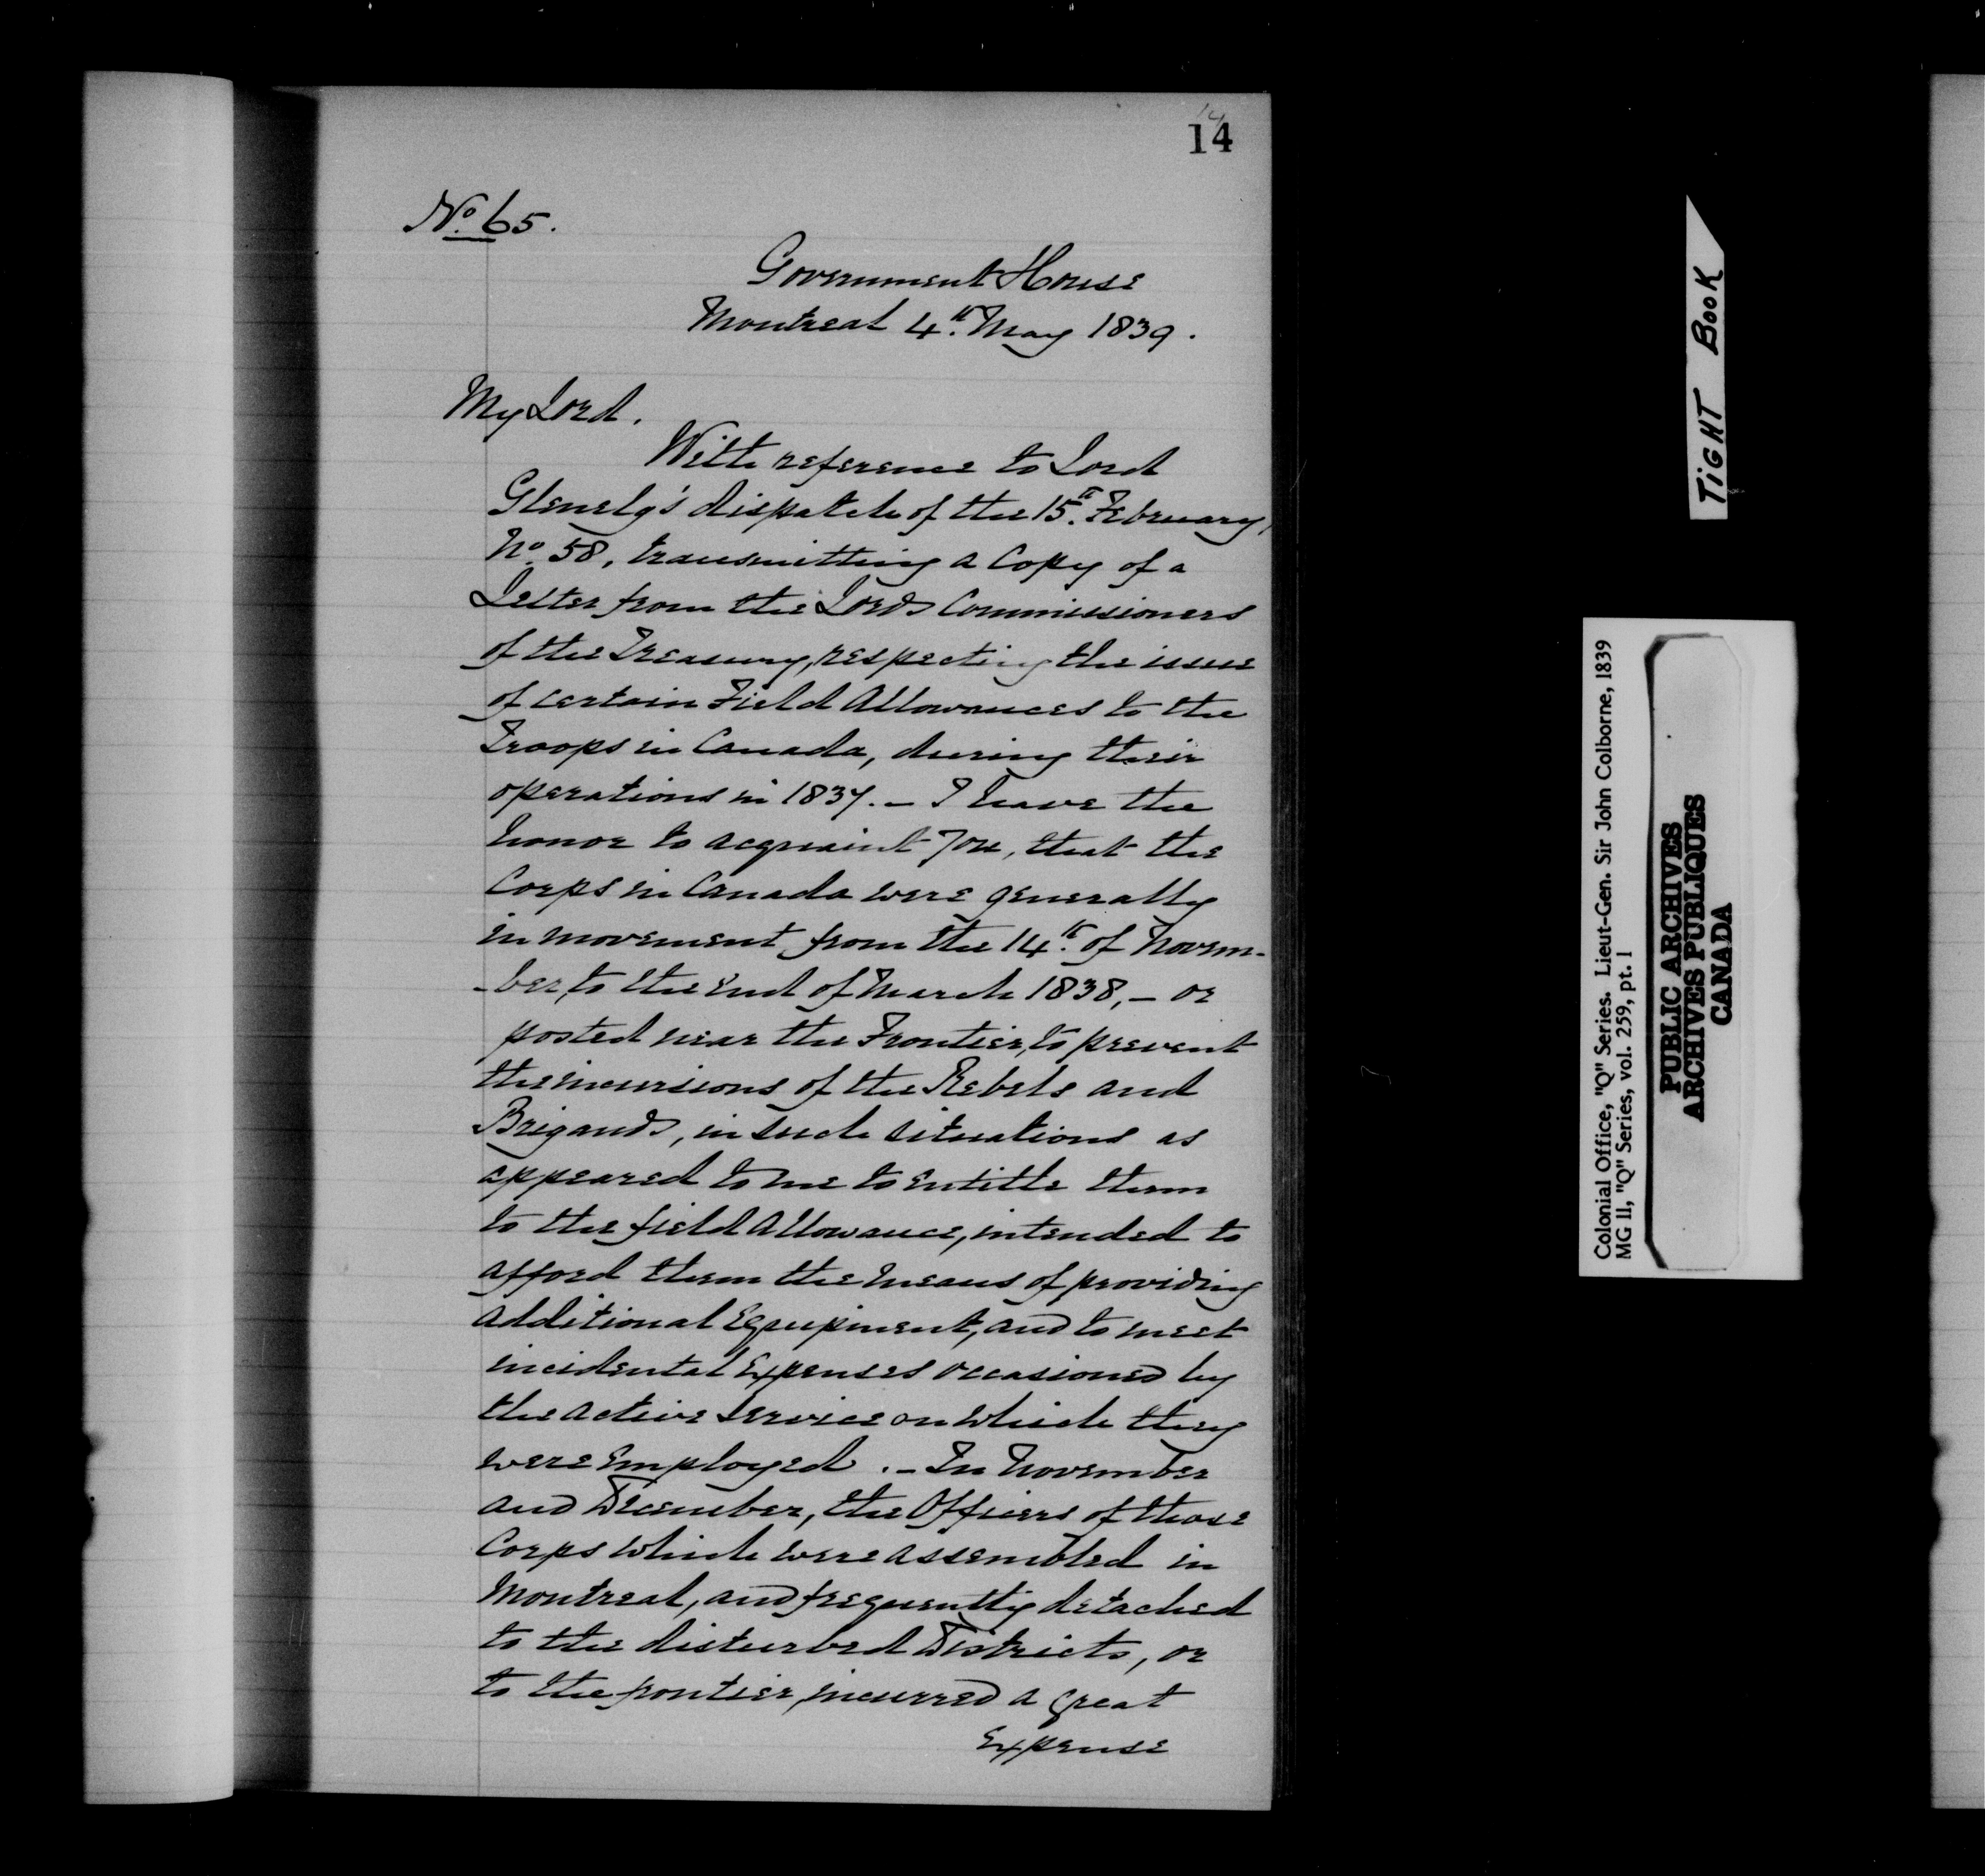 14
14
No. 65.
Government House
Montreal 4th. May 1839.
My Lord.
With reference to Lord
Glenelg's dispatch of the 15th. February,
No. 58, transmitting a Copy of a
Letter from the Lords Commissioners
of the Treasury, respecting the issue
of certain Field Allowances to the
Troops in Canada, during their
operations in 1837. – I have the
honor to acquaint You, that the
Corps in Canada were generally
in movement, from the 14th. of Novem-
-ber, to the end of March 1838, – or
posted near the Frontier, to prevent
the incursions of the Rebels and
Brigands, in such situations as
appeared to me to entitle them
to the field Allowance, intended to
afford them the means of providing
additional Equipment, and to meet
incidental Expenses occasioned by
the active Service on which they
were employed. – In November
and December, the Officers of those
Corps which were assembled in
Montreal, and frequently detached
to the disturbed Districts, or
to the frontier, incurred a great
Expense
TIGHT BOOK
Colonial Office, "Q" Series. Lieut-Gen. Sir John Colborne, 1839
MG II, "Q" Series, vol. 259, pt. 1
PUBLIC ARCHIVES
ARCHIVES PUBLIQUES
CANADA